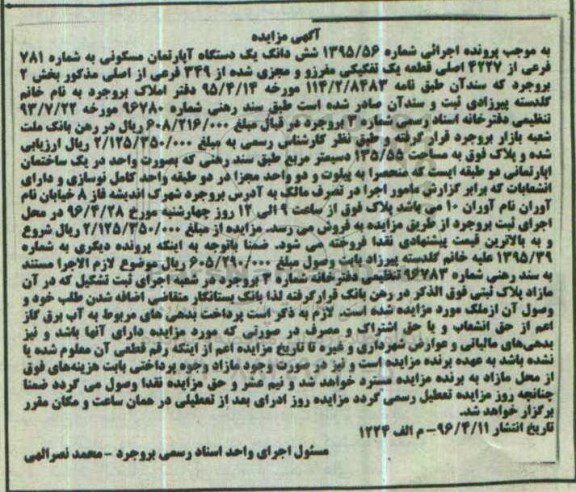 آگهی مزایده
به موجب پرونده اجرائی شماره ۱۳۹۵/۵۶ شش دانگ یک دستگاه آپارتمان مسکونی به شماره ۷۸۱
فرعی از ۴۲۲۷ اصلی قطعه یک تفکیکی مفرزو و مجزی شده از ۳۴۹ فرعی از اصلی مذکور بخش ۲
بروجرد که سندآن طبق نامه ۱۱۴/۲/۸۴۸۳ مورخه ۹۵/۴/۱۴ دفتر املاک بروجرد به نام خانم
گلدسته پیرزادی ثبت و سندآن صادر شده است طبق سند رهنی شماره ۹۶۷۸۰ مورخه ۹۳/۷/۲۲
تنظیمی دفترخانه اسناد رسمی شماره ۳ بروجرد در قبال مبلغ ۶۰۸/۲۱۶/۰۰۰ ریال در رهن بانک ملت
شعبه بازار بروجرد قرارگرفته و طبق نظر کارشناس رسمی به مبلغ ۲/۱۲۵/۳۵۰/۰۰۰ ریال ارزیابی
شده و پلاک فوق به مساحت ۱۳۵/۵۵ دسیمتر مربع طبق سند رهنی که بصورت واحد در یک ساختمان
اپارتمانی دو طبقه ایست که منحصرا به پیلوت و دو واحد مجزا در دو طبقه واحد کامل نوسازی و دارای
انشعابات که برابر گزارش مامور اجرا در تصرف مالک به آدرس بروجرد شهرک اندیشه فاز ۸ خیابان نام
آوران نام آوران ۱۰ می باشد پلاک فوق از ساعت ۹ الی ۱۲ روز چهارشنبه مورخ ۹۶/۴/۲۸ در محل
اجرای ثبت بروجرد از طریق مزایده به فروش می رسد. مزایده از مبلغ ۲/۱۲۵/۳۵۰/۰۰۰ ریال شروع
و به بالاترین قیمت پیشنهادی نقدا فروخته می شود. ضمنا باتوجه به اینکه پرونده دیگری به شماره
۱۳۹۵/۳۹ علیه خانم گلدسته پیرزاد بابت وصول مبلغ ۶۰۵/۲۹۰/۰۰۰ ریال موضوع لازم الاجرا مستند
به سند رهنی شماره ۹۶۷۸۳ تنظیمی دفترخانه شماره ۳ بروجرد در شعبه اجرای ثبت تشکیل که در آن
مازاد پلاک ثبتی فوق الذکر در رهن بانک قرارگرفته لذا بانک بستانکار متقاضی اضافه شدن طلب خود و
وصول آن ازملک مورد مزایده شده است. لازم به ذکر است پرداخت بدهی های مربوط به آب برق گاز
اعم از حق انشعاب و یا حق اشتراک و مصرف در صورتی که مورد مزایده دارای آنها باشد و نیز
بدهی‌های مالیاتی و عوارض شهرداری و غیره تا تاریخ مزایده اعم از اینکه رقم قطعی آن معلوم شده یا
نشده باشد به عهده برنده مزایده است و نیز در صورت وجود مازاد وجوه پرداختی بابت هزینه‌های فوق
از محل مازاد به برنده مزایده مسترد خواهد شد و نیم عشر و حق مزایده نقدا وصول می گردد ضمنا
چنانچه روز مزایده تعطیل رسمی گردد مزایده روز ادرای بعد از تعطیلی در همان ساعت و مکان مقرر
برگزار خواهد شد.
تاریخ انتشار ۹۶/۴/۱۱- م الف ۱۲۲۴
مسئول اجرای واحد اسناد رسمی بروجرد - محمد نصرالهی